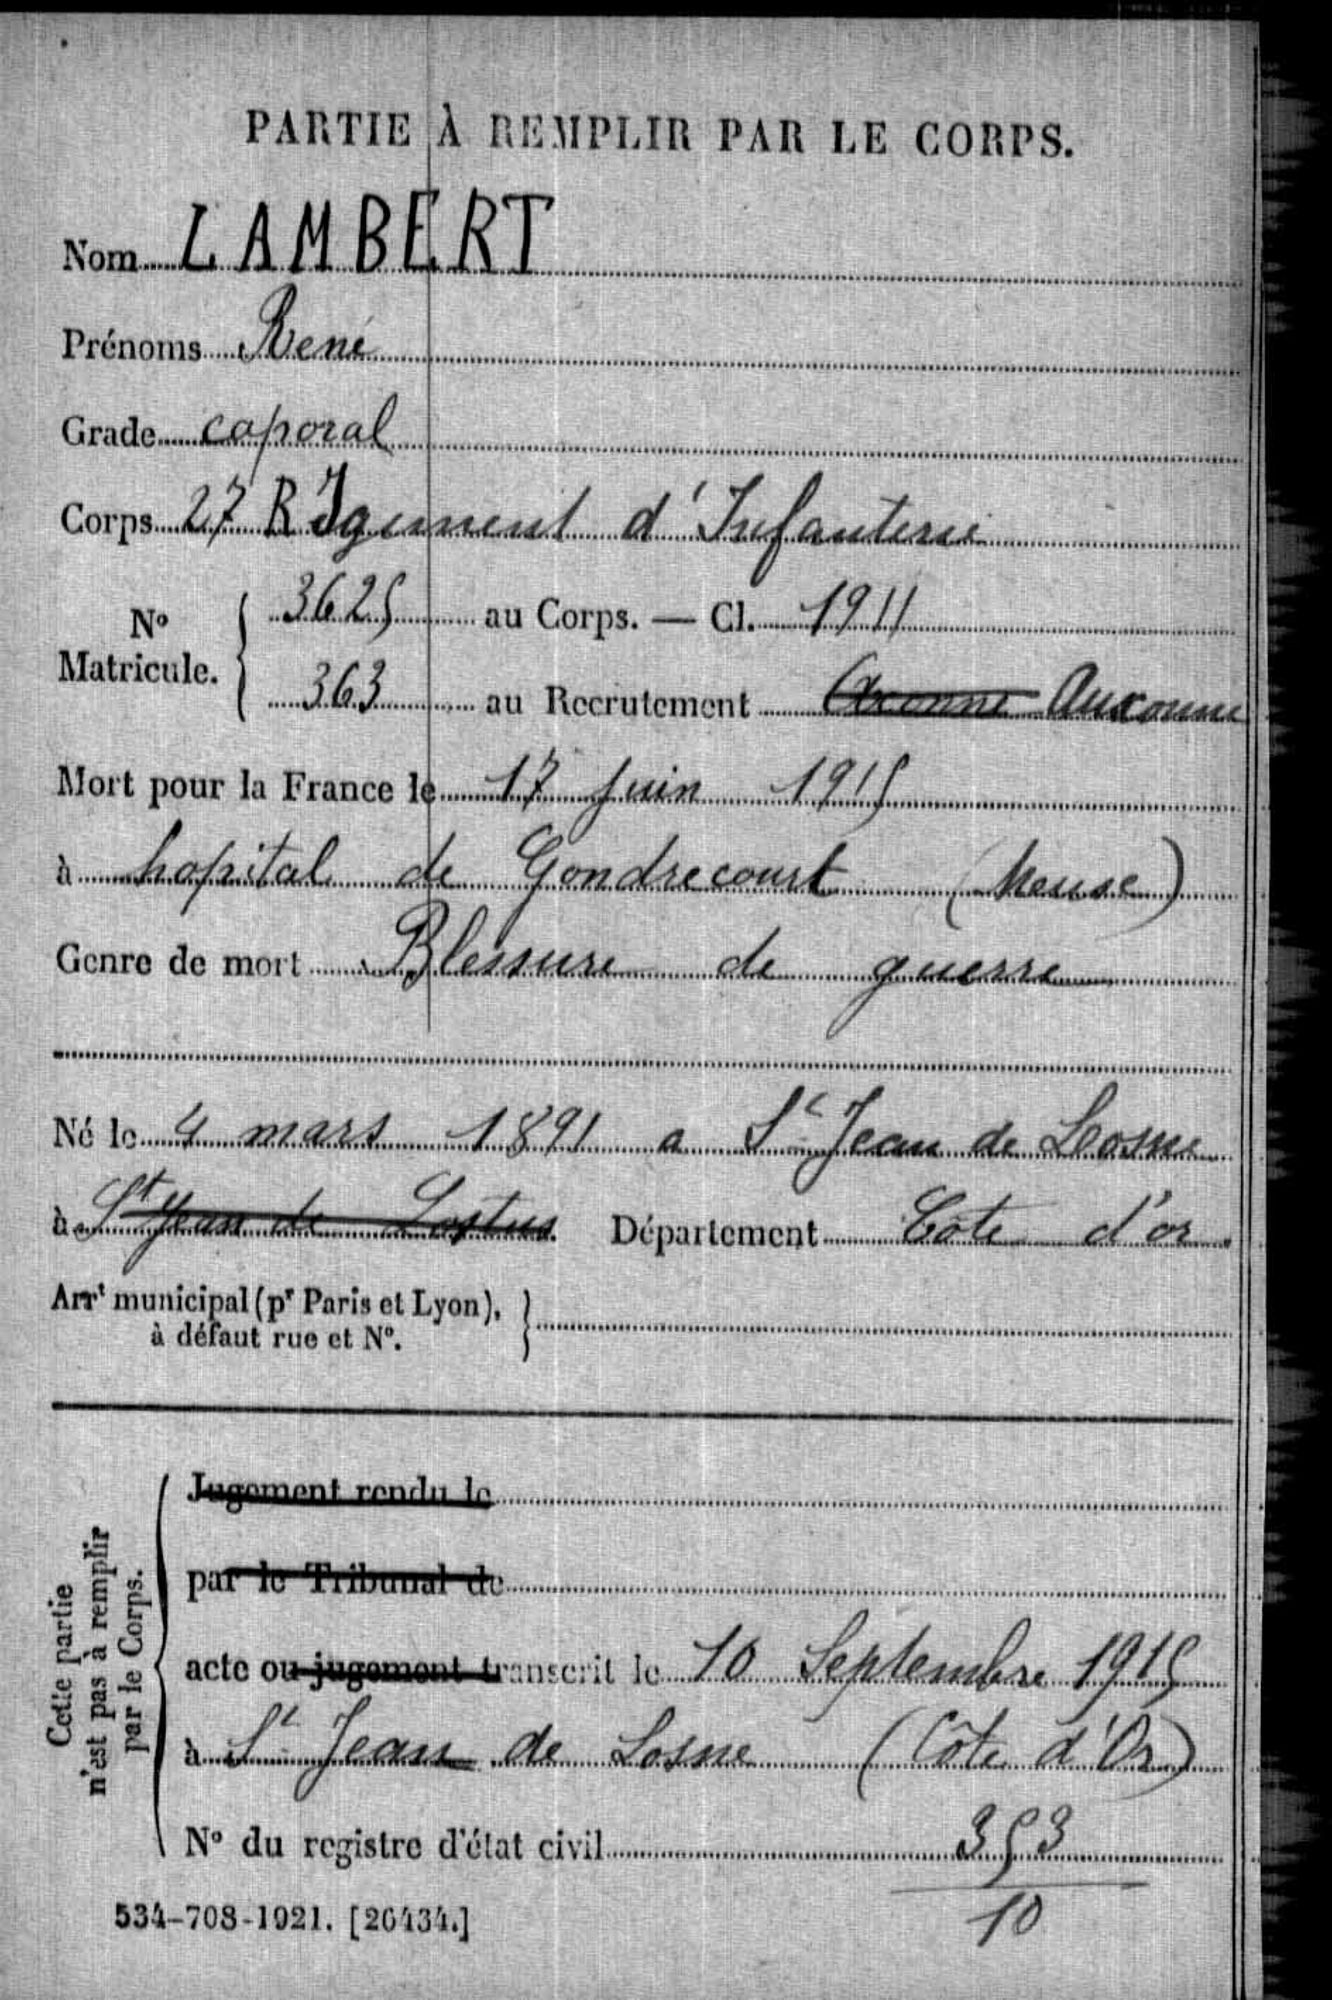 PARTIE À REMPLIR PAR LE CORPS.
Nom LAMBERT
Prénoms René
Grade caporal
Corps 27 R Igiment d'Infanterie
No Matricule. { 3625 au Corps. — Cl. 1911
363 au Recrutement Axonne Auxonne
Mort pour la France le 17 Juin 1915
à hopital de Gondrecourt (Meuse)
Genre de mort Blessure de guerre
Né le 4 mars 1891 a St Jean de Losne
à St Jean de Lostus Département Cote d'or
Arrt municipal (pr Paris et Lyon),
à défaut rue et No.
Cette partie
n'est pas à remplir
par le Corps.
Jugement rendu le
par le Tribunal de
acte ou jugement transcrit le 10 Septembre 1915
à St Jean de Losne (Côte d'Or)
No du registre d'état civil 353
10
534-708-1921. [26434.]